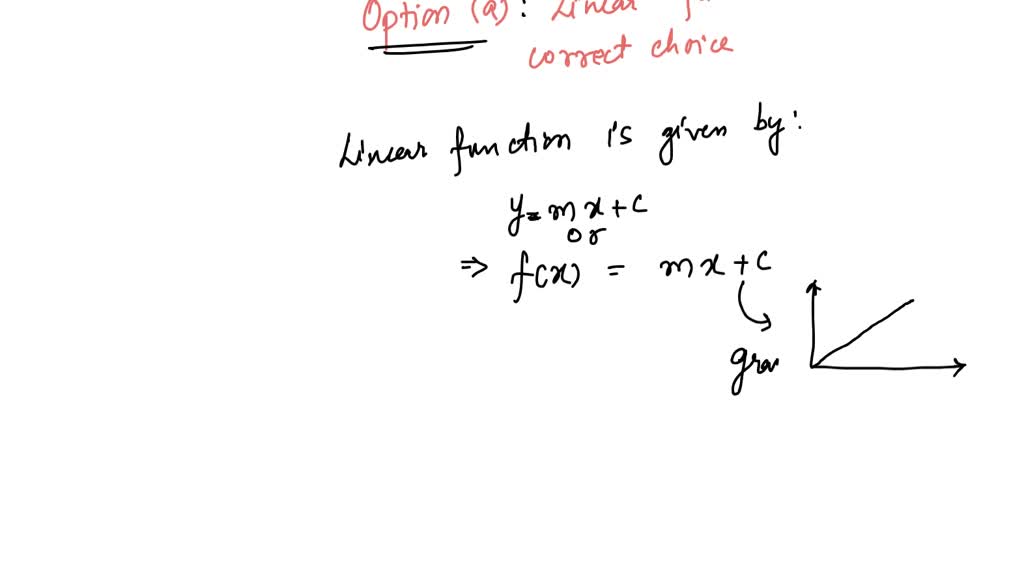 Option (a): Linear
correct choice
Linear function is given by:
y = mx + c
or
⇒ f(x) = mx + c
gra